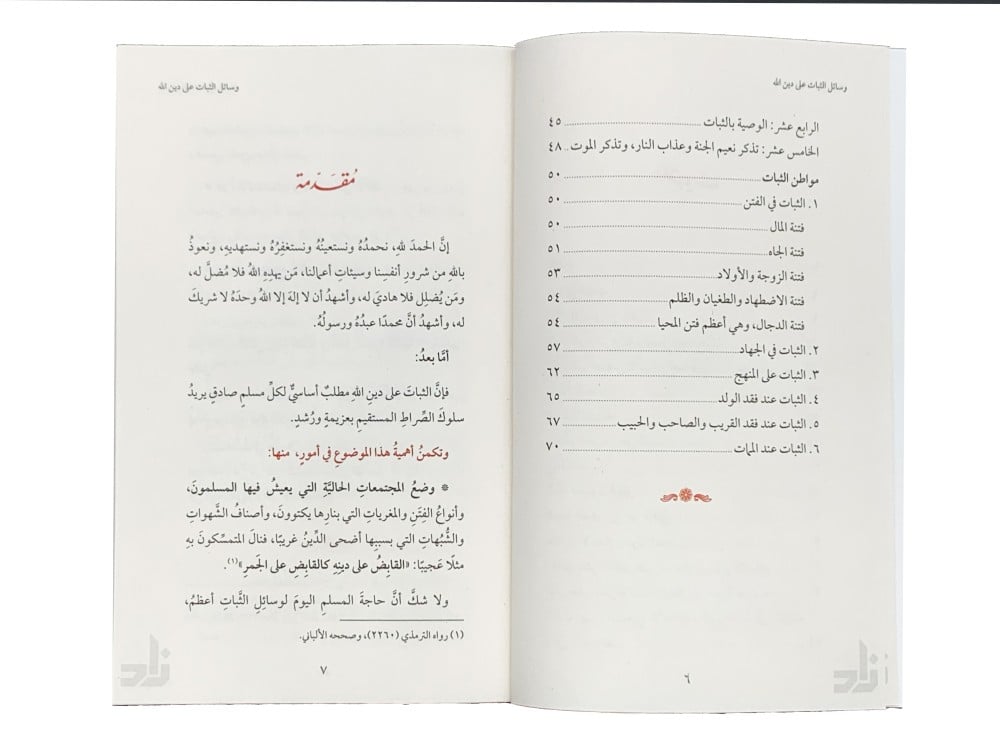 وسائل الثبات على دين الله
الرابع عشر: الوصية بالثبات ........ ٤٥
الخامس عشر: تذكر نعيم الجنة وعذاب النار، وتذكر الموت .. ٤٨
مواطن الثبات ........ ٥٠
١. الثبات في الفتن ........ ٥٠
فتنة المال ........ ٥٠
فتنة الجاه ........ ٥١
فتنة الزوجة والأولاد ........ ٥٣
فتنة الاضطهاد والطغيان والظلم ........ ٥٤
فتنة الدجال، وهي أعظم فتن المحيا ........ ٥٤
٢. الثبات في الجهاد ........ ٥٧
٣. الثبات على المنهج ........ ٦٢
٤. الثبات عند فقد الولد ........ ٦٥
٥. الثبات عند فقد القريب والصاحب والحبيب ........ ٦٧
٦. الثبات عند الممات ........ ٧٠
٦
زاد
وسائل الثبات على دين الله
مُقَدِّمَة
إنَّ الحمدَ للهِ، نحمدُهُ ونستعينُهُ ونستغفِرُهُ ونستهديهِ، ونعوذُ
باللهِ من شرورِ أنفسِنا وسيئاتِ أعمالنا، مَن يهدِهِ اللهُ فلا مُضلَّ له،
ومَن يُضلِل فلا هاديَ له، وأشهدُ أن لا إلهَ إلا اللهُ وحدَهُ لا شريكَ
له، وأشهدُ أنَّ محمدًا عبدُهُ ورسولُهُ.
أمَّا بعدُ:
فإنَّ الثباتَ على دينِ اللهِ مطلبٌ أساسيٌّ لكلِّ مسلمٍ صادقٍ يريدُ
سلوكَ الصِّراطِ المستقيمِ بعزيمةٍ ورُشدٍ.
وتكمنُ أهميةُ هذا الموضوعِ في أمورٍ، منها:
* وضعُ المجتمعاتِ الحاليَّةِ التي يعيشُ فيها المسلمونَ،
وأنواعُ الفِتَنِ والمغرياتِ التي بنارِها يكتوونَ، وأصنافُ الشَّهواتِ
والشُّبُهاتِ التي بسببِها أضحى الدِّينُ غريبًا، فنالَ المتمسِّكونَ بهِ
مثلًا عَجيبًا: «القابضُ على دينِهِ كالقابِضِ على الجَمرِ»(١).
ولا شكَّ أنَّ حاجةَ المسلمِ اليومَ لوسائلِ الثَّباتِ أعظمُ،
(١) رواه الترمذي (٢٢٦٠)، وصححه الألباني.
٧
زاد